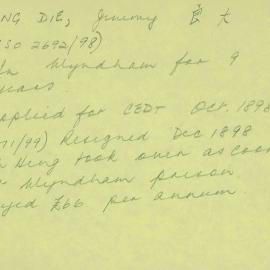 NG DIE, Jimmy 良 大
CSO 2692/98)
In Wyndham for 9
ears
applied for CEDT Oct. 1898
71/99) Resigned Dec 1898
Hing took over as cook
Wyndham prison
£66 per annum.